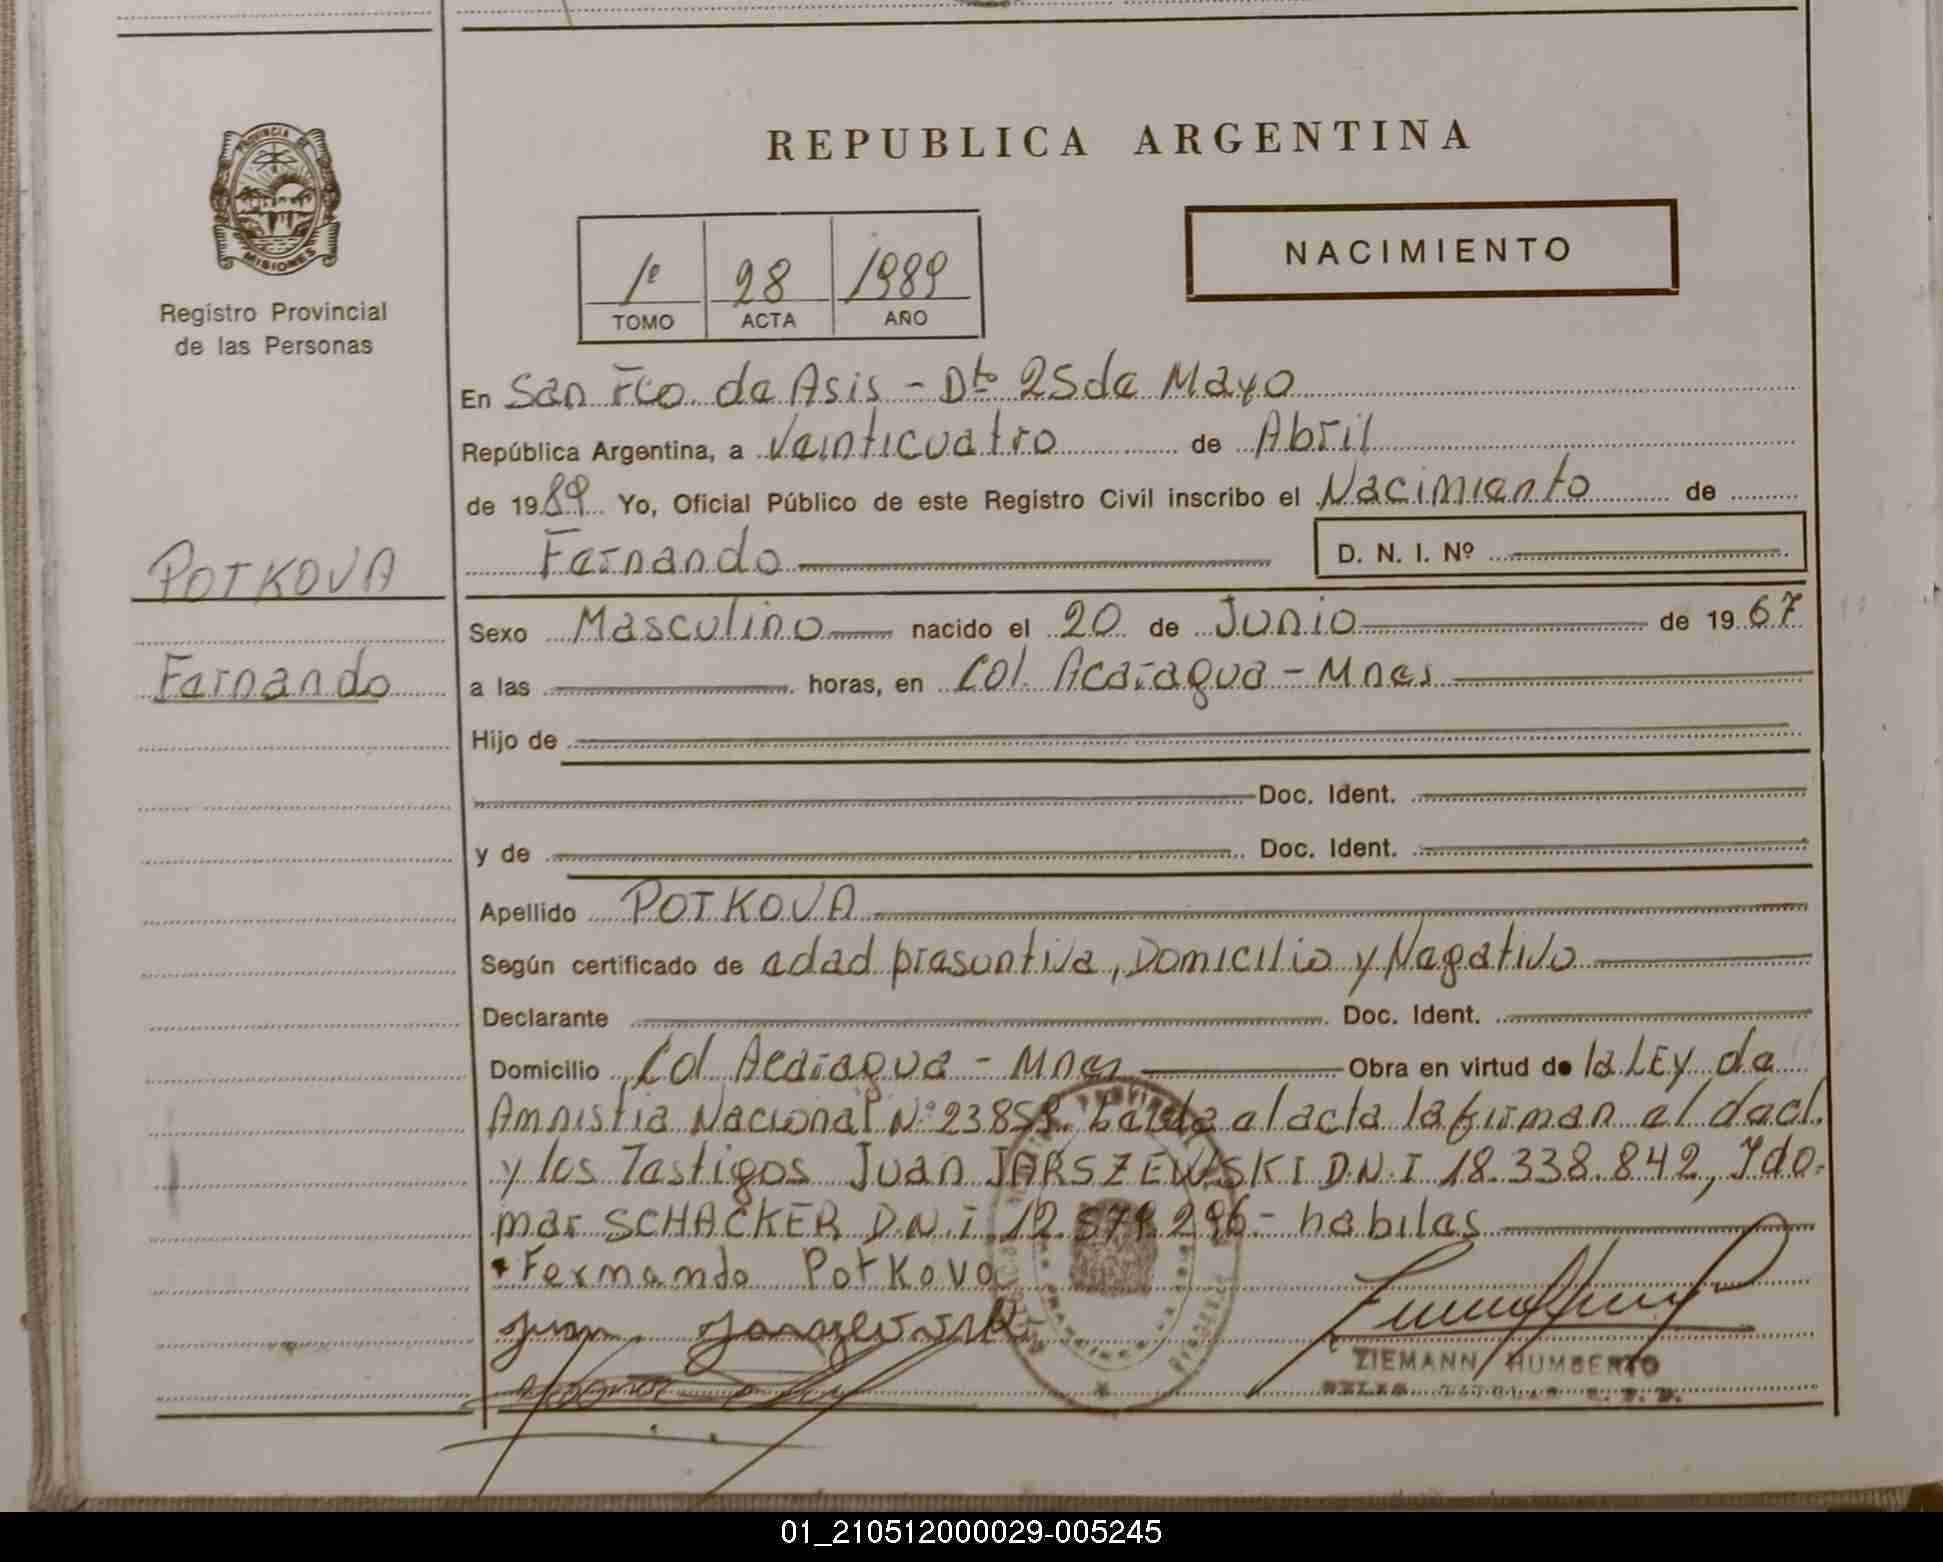 PROVINCIA DE
MISIONES
Registro Provincial
de las Personas
POTKOVA
Fernando
REPUBLICA ARGENTINA
NACIMIENTO
1º 28 1989
TOMO ACTA AÑO
En San Fco. de Asis - Dto 25 de Mayo
República Argentina, a Veinticuatro de Abril
de 1989 Yo, Oficial Público de este Registro Civil inscribo el Nacimiento de
Fernando D. N. I. Nº
Sexo Masculino nacido el 20 de Junio de 1967
a las horas, en Col. Acaragua - Mnes
Hijo de
Doc. Ident.
y de Doc. Ident.
Apellido POTKOVA
Según certificado de edad presuntiva, Domicilio y Negativo
Declarante Doc. Ident.
Domicilio Col Acaragua - Mnes Obra en virtud de la LEY de
Amnistia Nacional Nº 23859. Leida el acta la firman el decl.
y los Testigos Juan JARSZEWSKI D.N.I 18.338.842, Ydo-
mar SCHACKER D.N.I. 12.879.296.- habiles
Fernando Potkova
Juan
ZIEMANN HUMBERTO
01_210512000029-005245